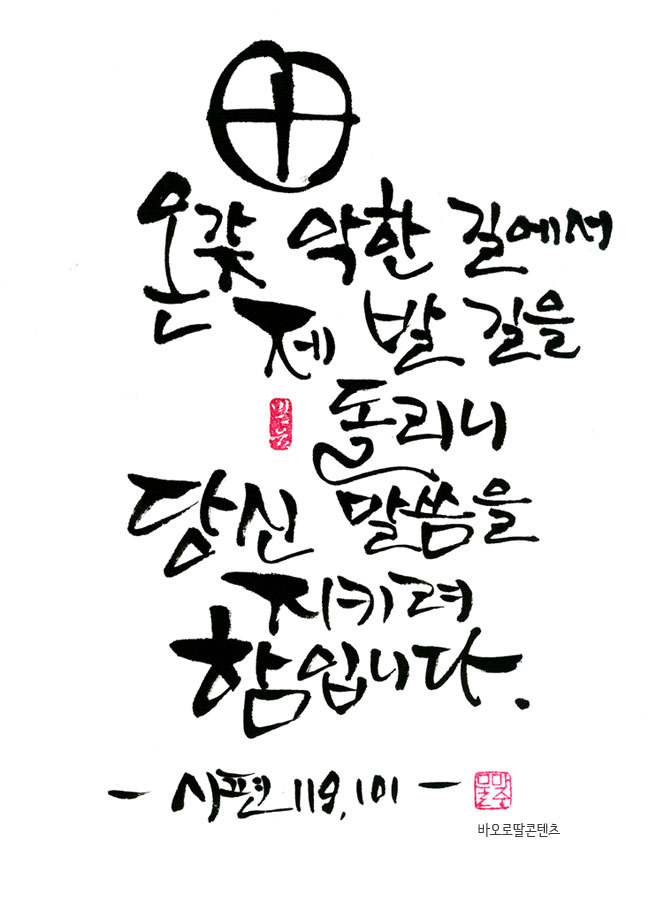 온갖 악한 길에서
제 발 길을
돌리니
당신 말씀을
지키려
함입니다.
- 시편 119,101 -
바오로딸콘텐츠